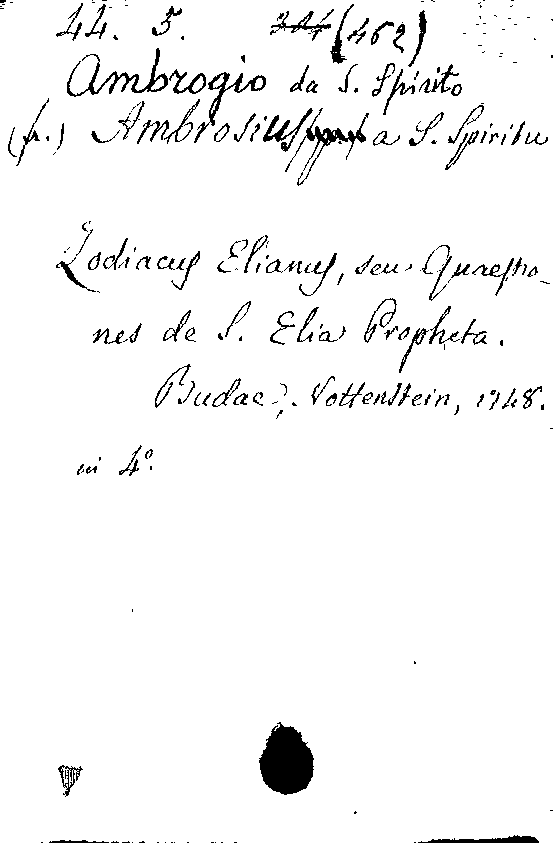 44. 5. 324 (462)
Ambrogio da S. Spirito
(fr.) Ambrosius a S. Spiritu
Zodiacus Elianus, seu Quaestio-
nes de S. Elia Propheta.
Budae, Nottenstein, 1748.
in 4°.